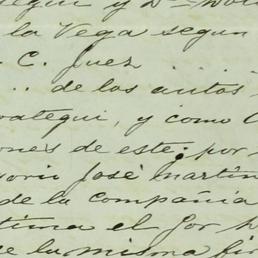 egui y Dn
la Vega segun
C. Juez
.. de los autos
rategui, y como
ones de este; por
orio José Martin
de la compañia
tima el Sor
de la misma fir